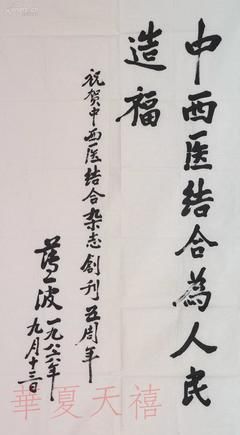 中西医结合為人民
造福
祝贺中西医结合杂志创刊五周年
薄一波
一九八六年
九月十三日
華夏天禧